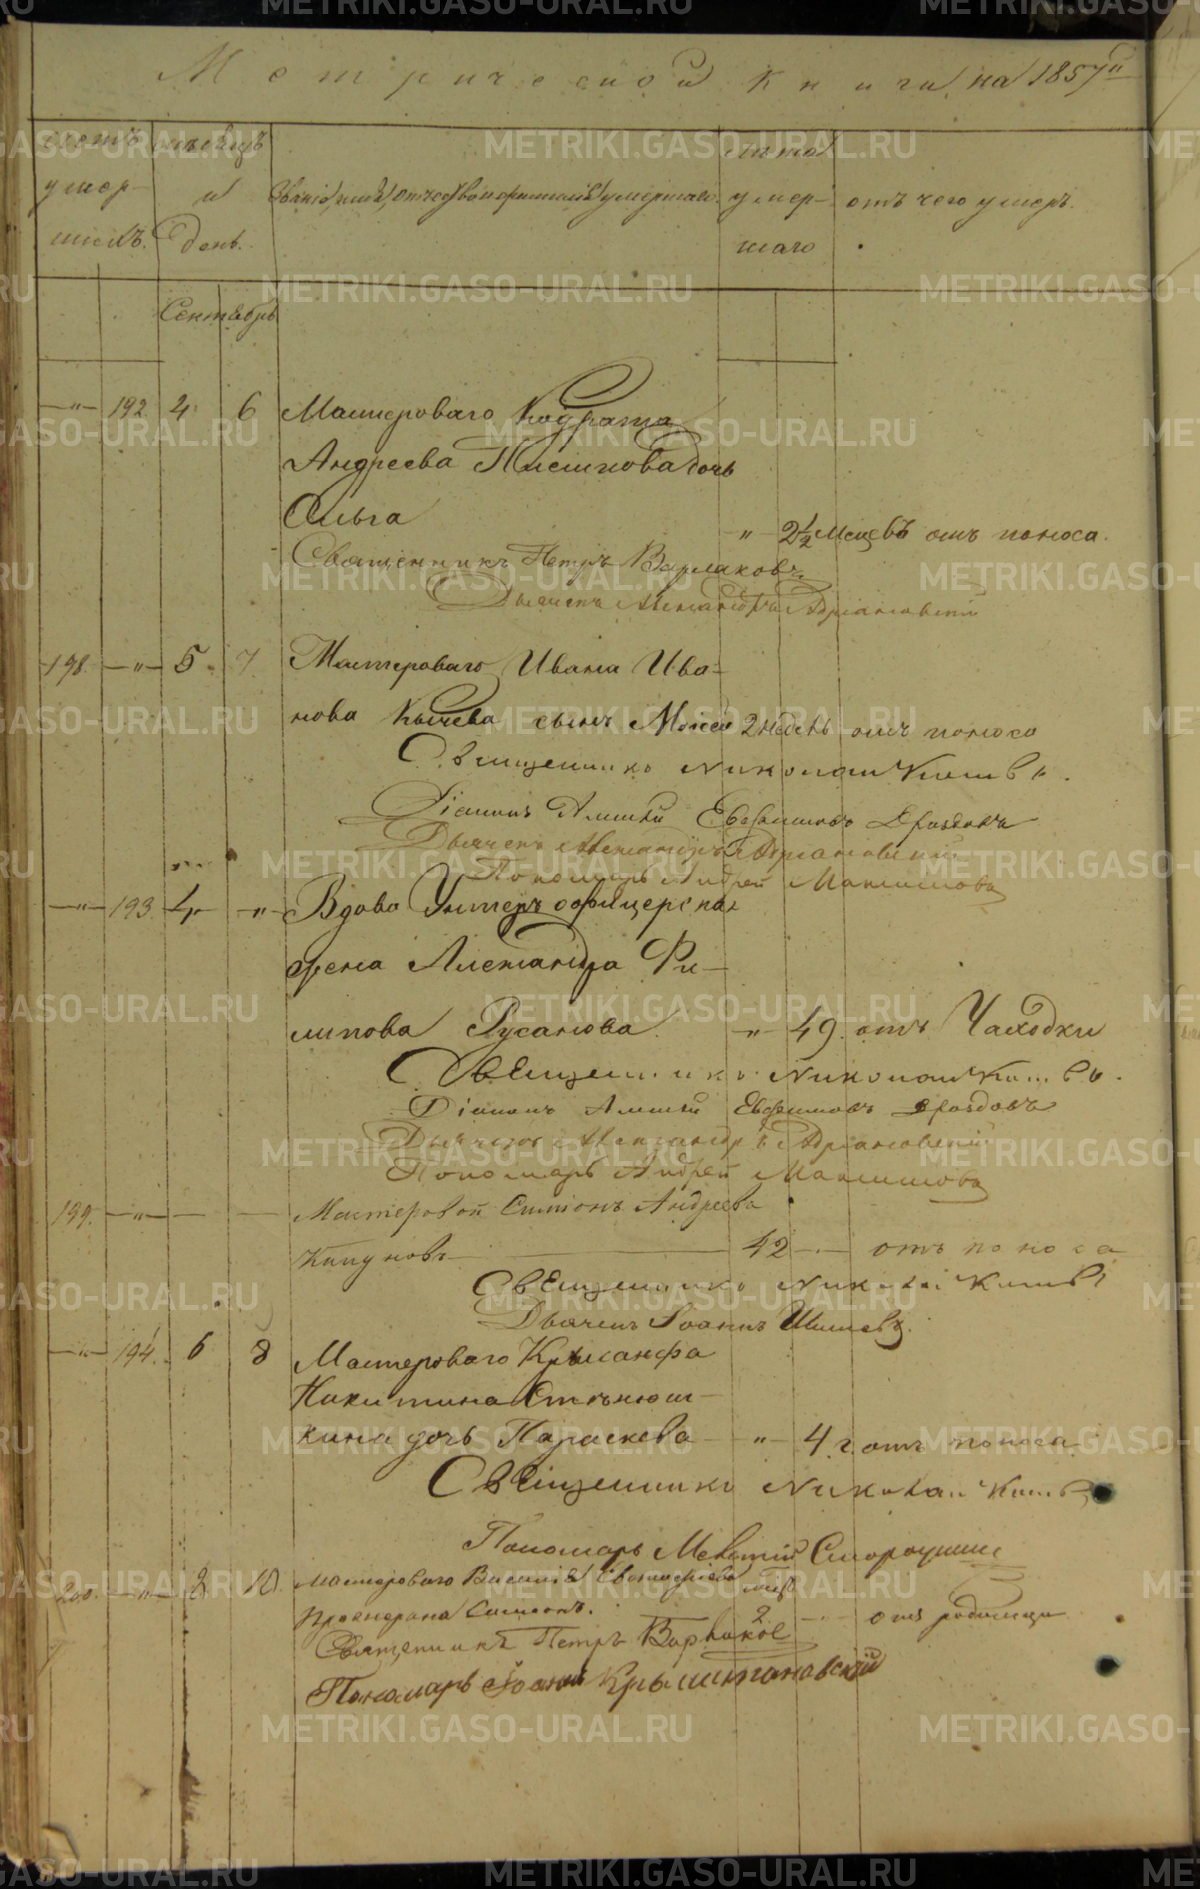 Метрической книги на 1857й
счетъ умер- шихъ.
мѣсяцъ и день.
Званіе, имя, отчество и фамилія умершаго.
лѣта умер- шаго
отъ чего умеръ.
Сентябрь
—„— 192. 4. 6 Мастероваго Кодрата
Андреева Плешкова дочь
Ольга „ 2½ месцевъ отъ поноса.
Священникъ Петръ Варлаковъ.
Дьячекъ Александръ Адріановскій
198. —„— 5. 7 Мастероваго Ивана Ива-
нова Кычева сынъ Моисей 2 недель отъ поноса
Священникъ Николай
Діаконъ Алексѣй Евфимовъ Дроздовъ
Дьячекъ Александръ Адріановскій
Пономарь Андрей Максимовъ
—„— 193. 4. —„— Вдова Унтеръ офицерская
жена Александра Фи-
липова Русанова „ 49. отъ Чахотки
Священникъ Николай
Діаконъ Алексѣй Евфимовъ Дроздовъ
Дьячекъ Александръ Адріановскій
Пономарь Андрей Максимовъ
199. —„— — — Мастеровой Симіонъ Андреевъ
42 — отъ поноса
Священникъ Николай
Дьячекъ Іоаннъ Шишевъ.
—„— 194. 6 8 Мастероваго Крисанфа
Никитина Стѣнюш-
кина дочь Параскева — „ 4 г отъ поноса
Священникъ Николай
Пономарь
200. —„— 8. 10. Мастероваго Василія
Симеонъ. мѣс 2 — отъ родимца
Священникъ Петръ Варлаковъ
Пономарь Іоаннъ
METRIKI.GASO-URAL.RU